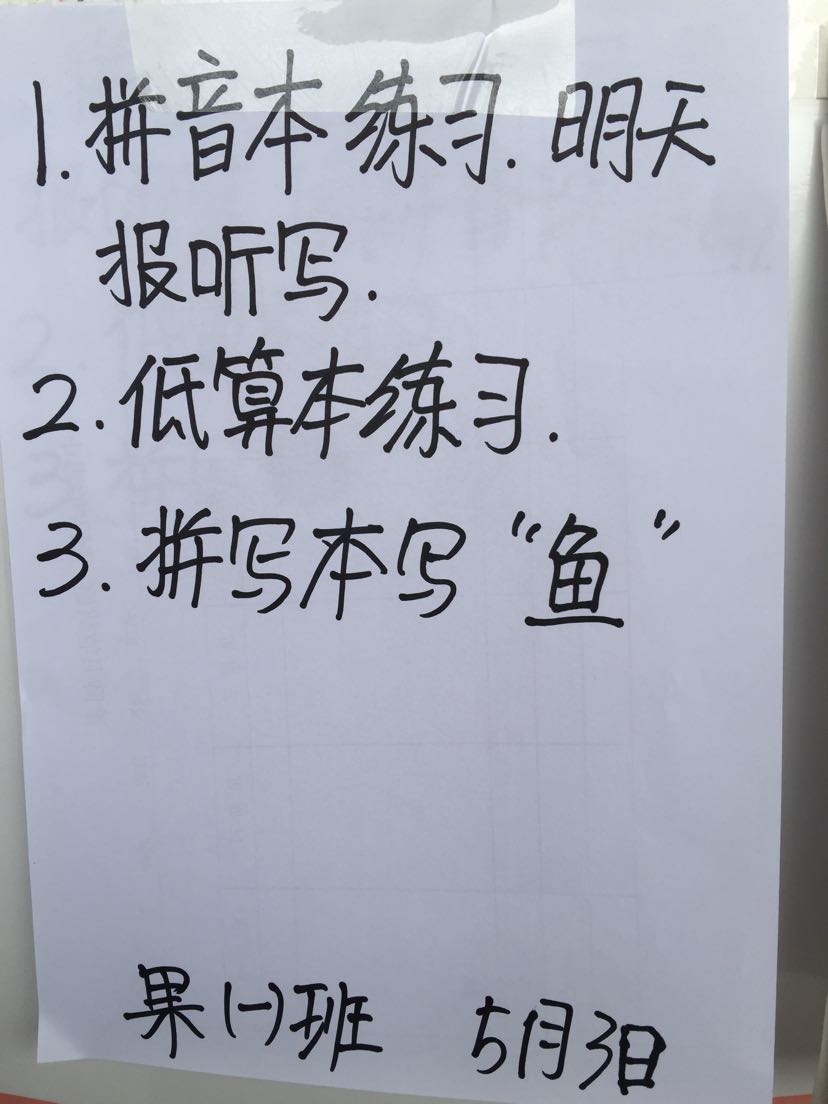 1.拼音本练习.明天
报听写.
2.低算本练习.
3.拼写本写“鱼”
果(一)班 5月3日